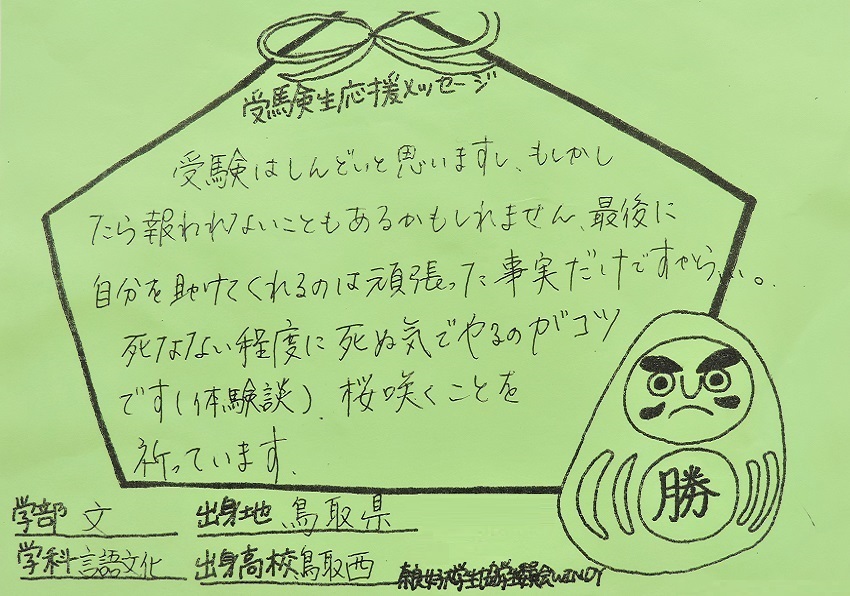 受験生応援メッセージ
受験はしんどいと思いますし、もしかし
たら報われないこともあるかもしれません、最後に
自分を助けてくれるのは頑張った事実だけですから、、、。
死なない程度に死ぬ気でやるのがコツ
です(体験談)、桜咲くことを
祈っています、
勝
学部 文 出身地 鳥取県
学科 言語文化 出身高校 鳥取西
WENDY